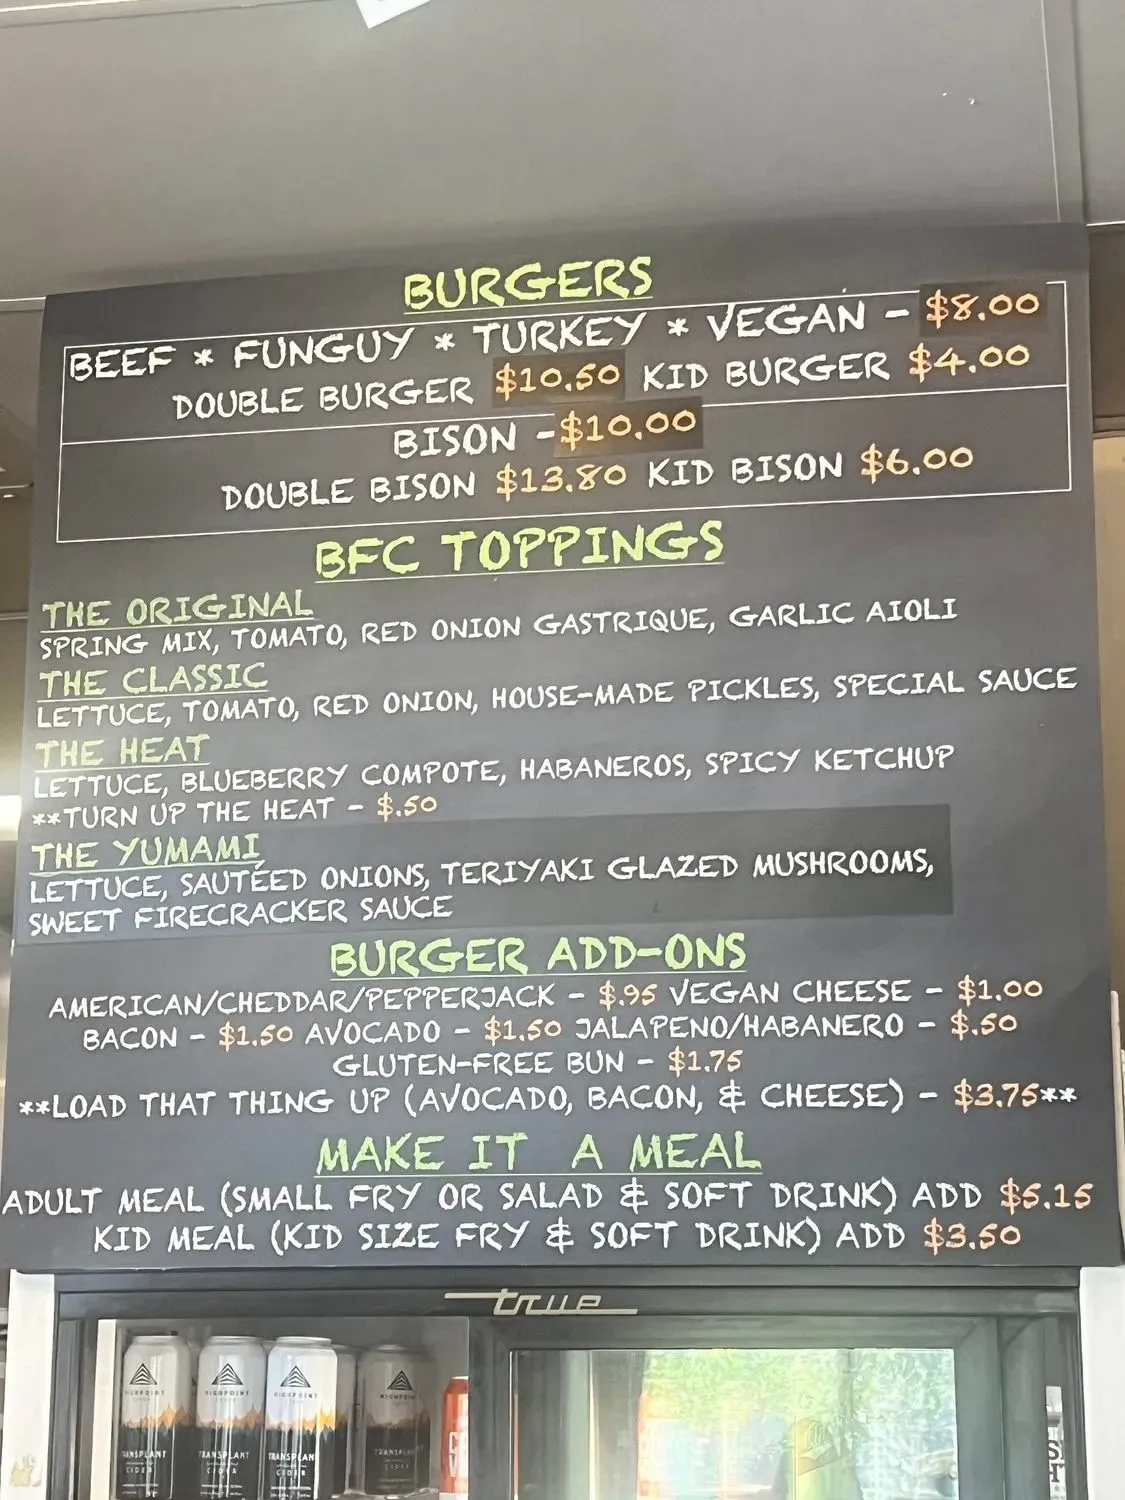 BURGERS
BEEF * FUNGUY * TURKEY * VEGAN - $8.00
DOUBLE BURGER $10.50 KID BURGER $4.00
BISON - $10.00
DOUBLE BISON $13.80 KID BISON $6.00
BFC TOPPINGS
THE ORIGINAL
SPRING MIX, TOMATO, RED ONION GASTRIQUE, GARLIC AIOLI
THE CLASSIC
LETTUCE, TOMATO, RED ONION, HOUSE-MADE PICKLES, SPECIAL SAUCE
THE HEAT
LETTUCE, BLUEBERRY COMPOTE, HABANEROS, SPICY KETCHUP
**TURN UP THE HEAT - $.50
THE YUMAMI
LETTUCE, SAUTÉED ONIONS, TERIYAKI GLAZED MUSHROOMS,
SWEET FIRECRACKER SAUCE
BURGER ADD-ONS
AMERICAN/CHEDDAR/PEPPERJACK - $.95 VEGAN CHEESE - $1.00
BACON - $1.50 AVOCADO - $1.50 JALAPENO/HABANERO - $.50
GLUTEN-FREE BUN - $1.75
**LOAD THAT THING UP (AVOCADO, BACON, & CHEESE) - $3.75**
MAKE IT A MEAL
ADULT MEAL (SMALL FRY OR SALAD & SOFT DRINK) ADD $5.15
KID MEAL (KID SIZE FRY & SOFT DRINK) ADD $3.50
true
HIGHPOINT HIGHPOINT HIGHPOINT
TRANSPLANT TRANSPLANT TRANSPLANT
CIDER CIDER CIDER